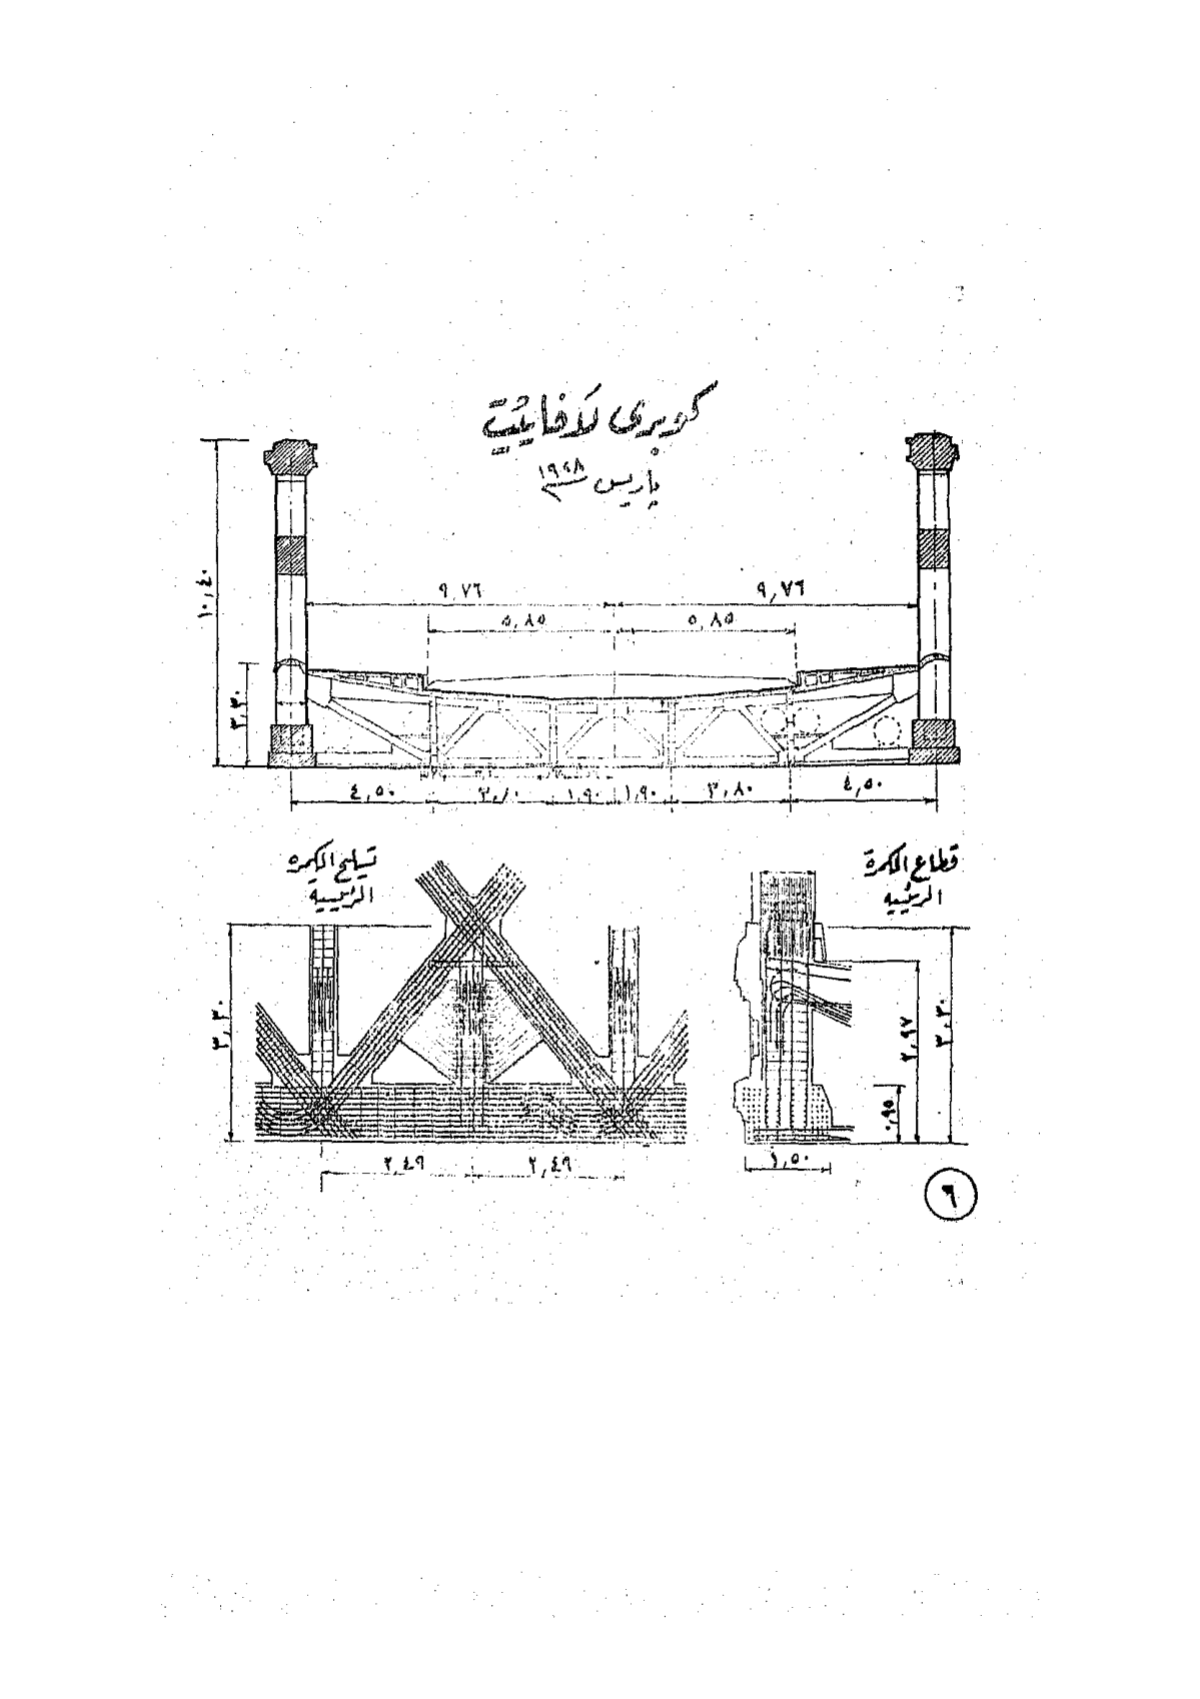 كوبرى لافاييت
باريس ١٩٢٨
١٠,٤٠
٩,٧٦
٩,٧٦
٥,٨٥
٥,٨٥
٣,٣٠
٤,٥٠
١,٩٠
١,٩٠
٣,٨٠
٤,٥٠
تسليح الكمره
الرئيسيه
قطاع الكمرة
الرئيسيه
٣,٣٠
٢,٤٩
٢,٤٩
٢,٩٧
٣,٣٠
٠,٩٥
١,٥٠
٦